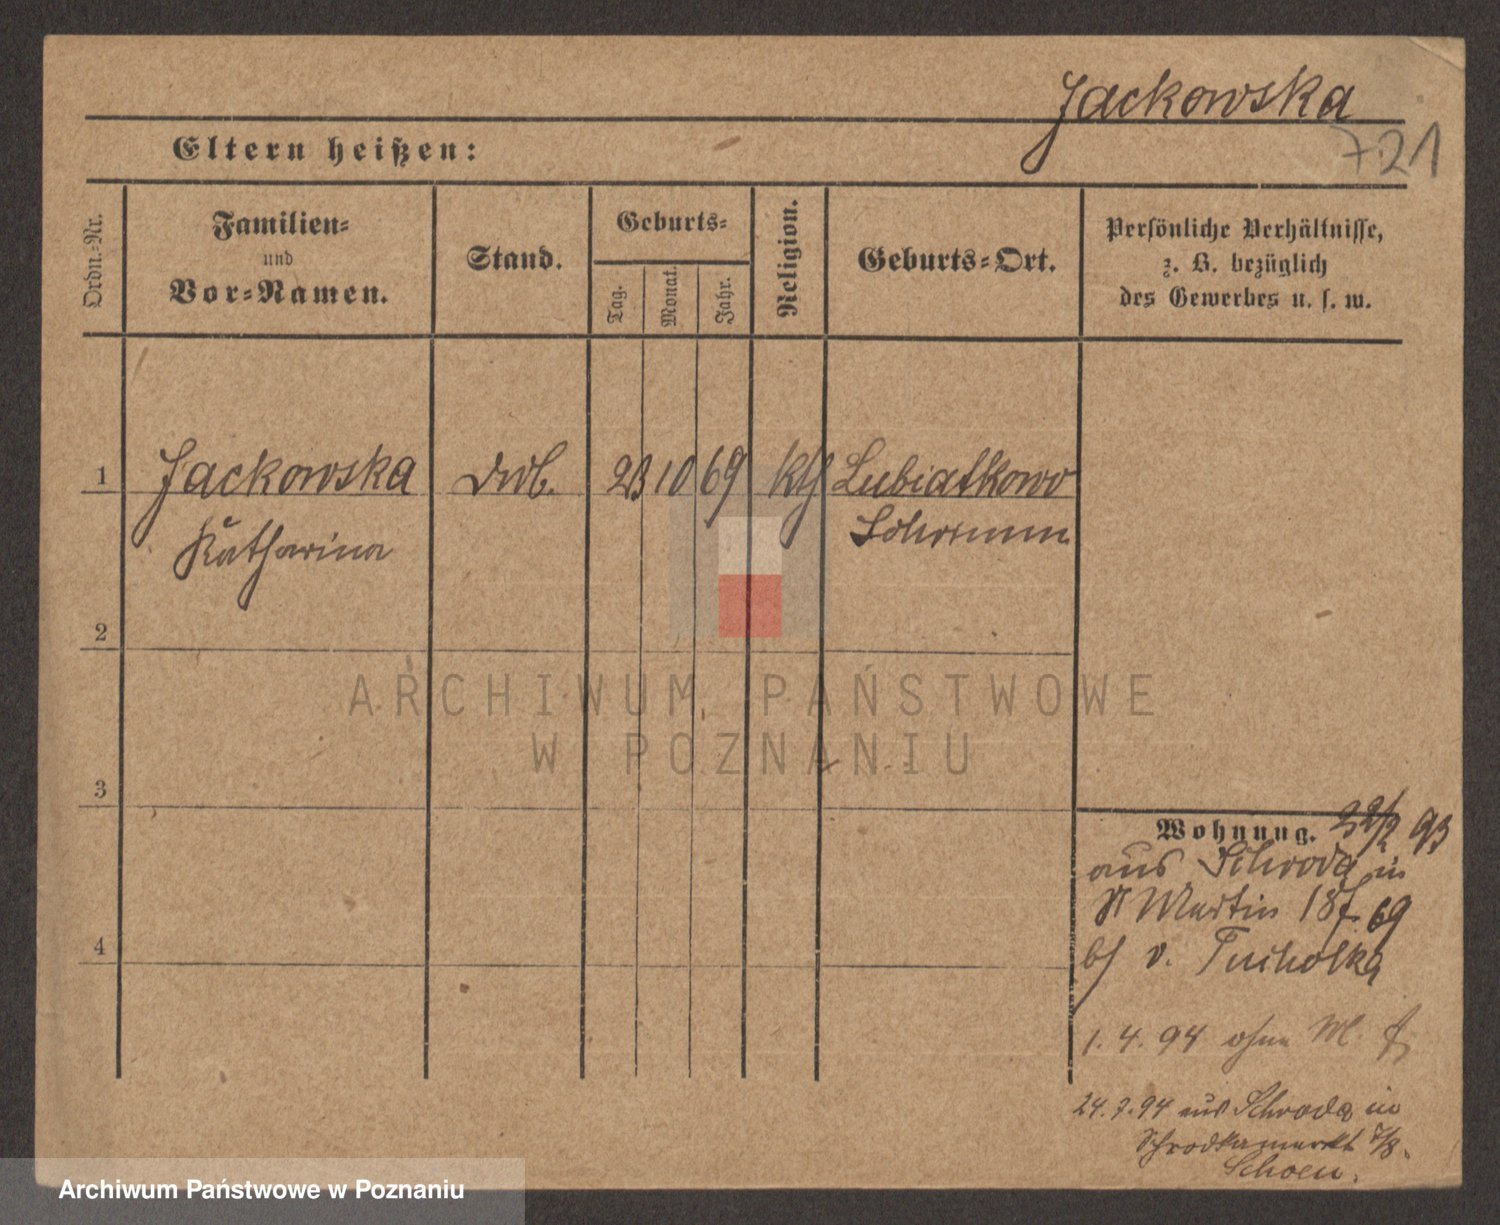 Jackowska
721
Eltern heißen:
Ordn.-Nr.
Familien-
und
Vor-Namen.
Stand.
Geburts-
Tag.
Monat.
Jahr.
Religion.
Geburts-Ort.
Persönliche Verhältnisse,
z. B. bezüglich
des Gewerbes u. s. w.
1 Jackowska 23 10 69 kth Lubiatkowo
Katharina Schrimm
2
3
4
Wohnung. 22/2 93
aus Schroda in
St Martin 69
bei v. Tucholka
1. 4. 94 ohne M.
24. 7. 94 aus Schroda in
Schrodkamarkt 7/8.
Schoen.
ARCHIWUM PAŃSTWOWE
W POZNANIU
Archiwum Państwowe w Poznaniu